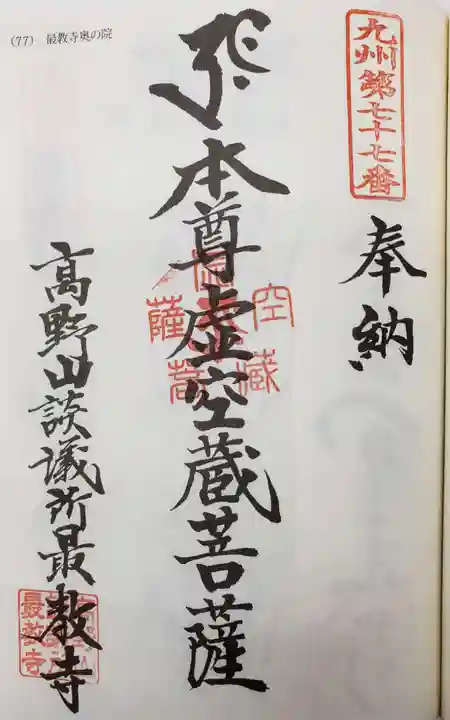 (77) 最教寺奥の院
九州第七十七番
奉納
本尊虚空蔵菩薩
高野山談議所最教寺
虚空蔵菩薩
最教寺